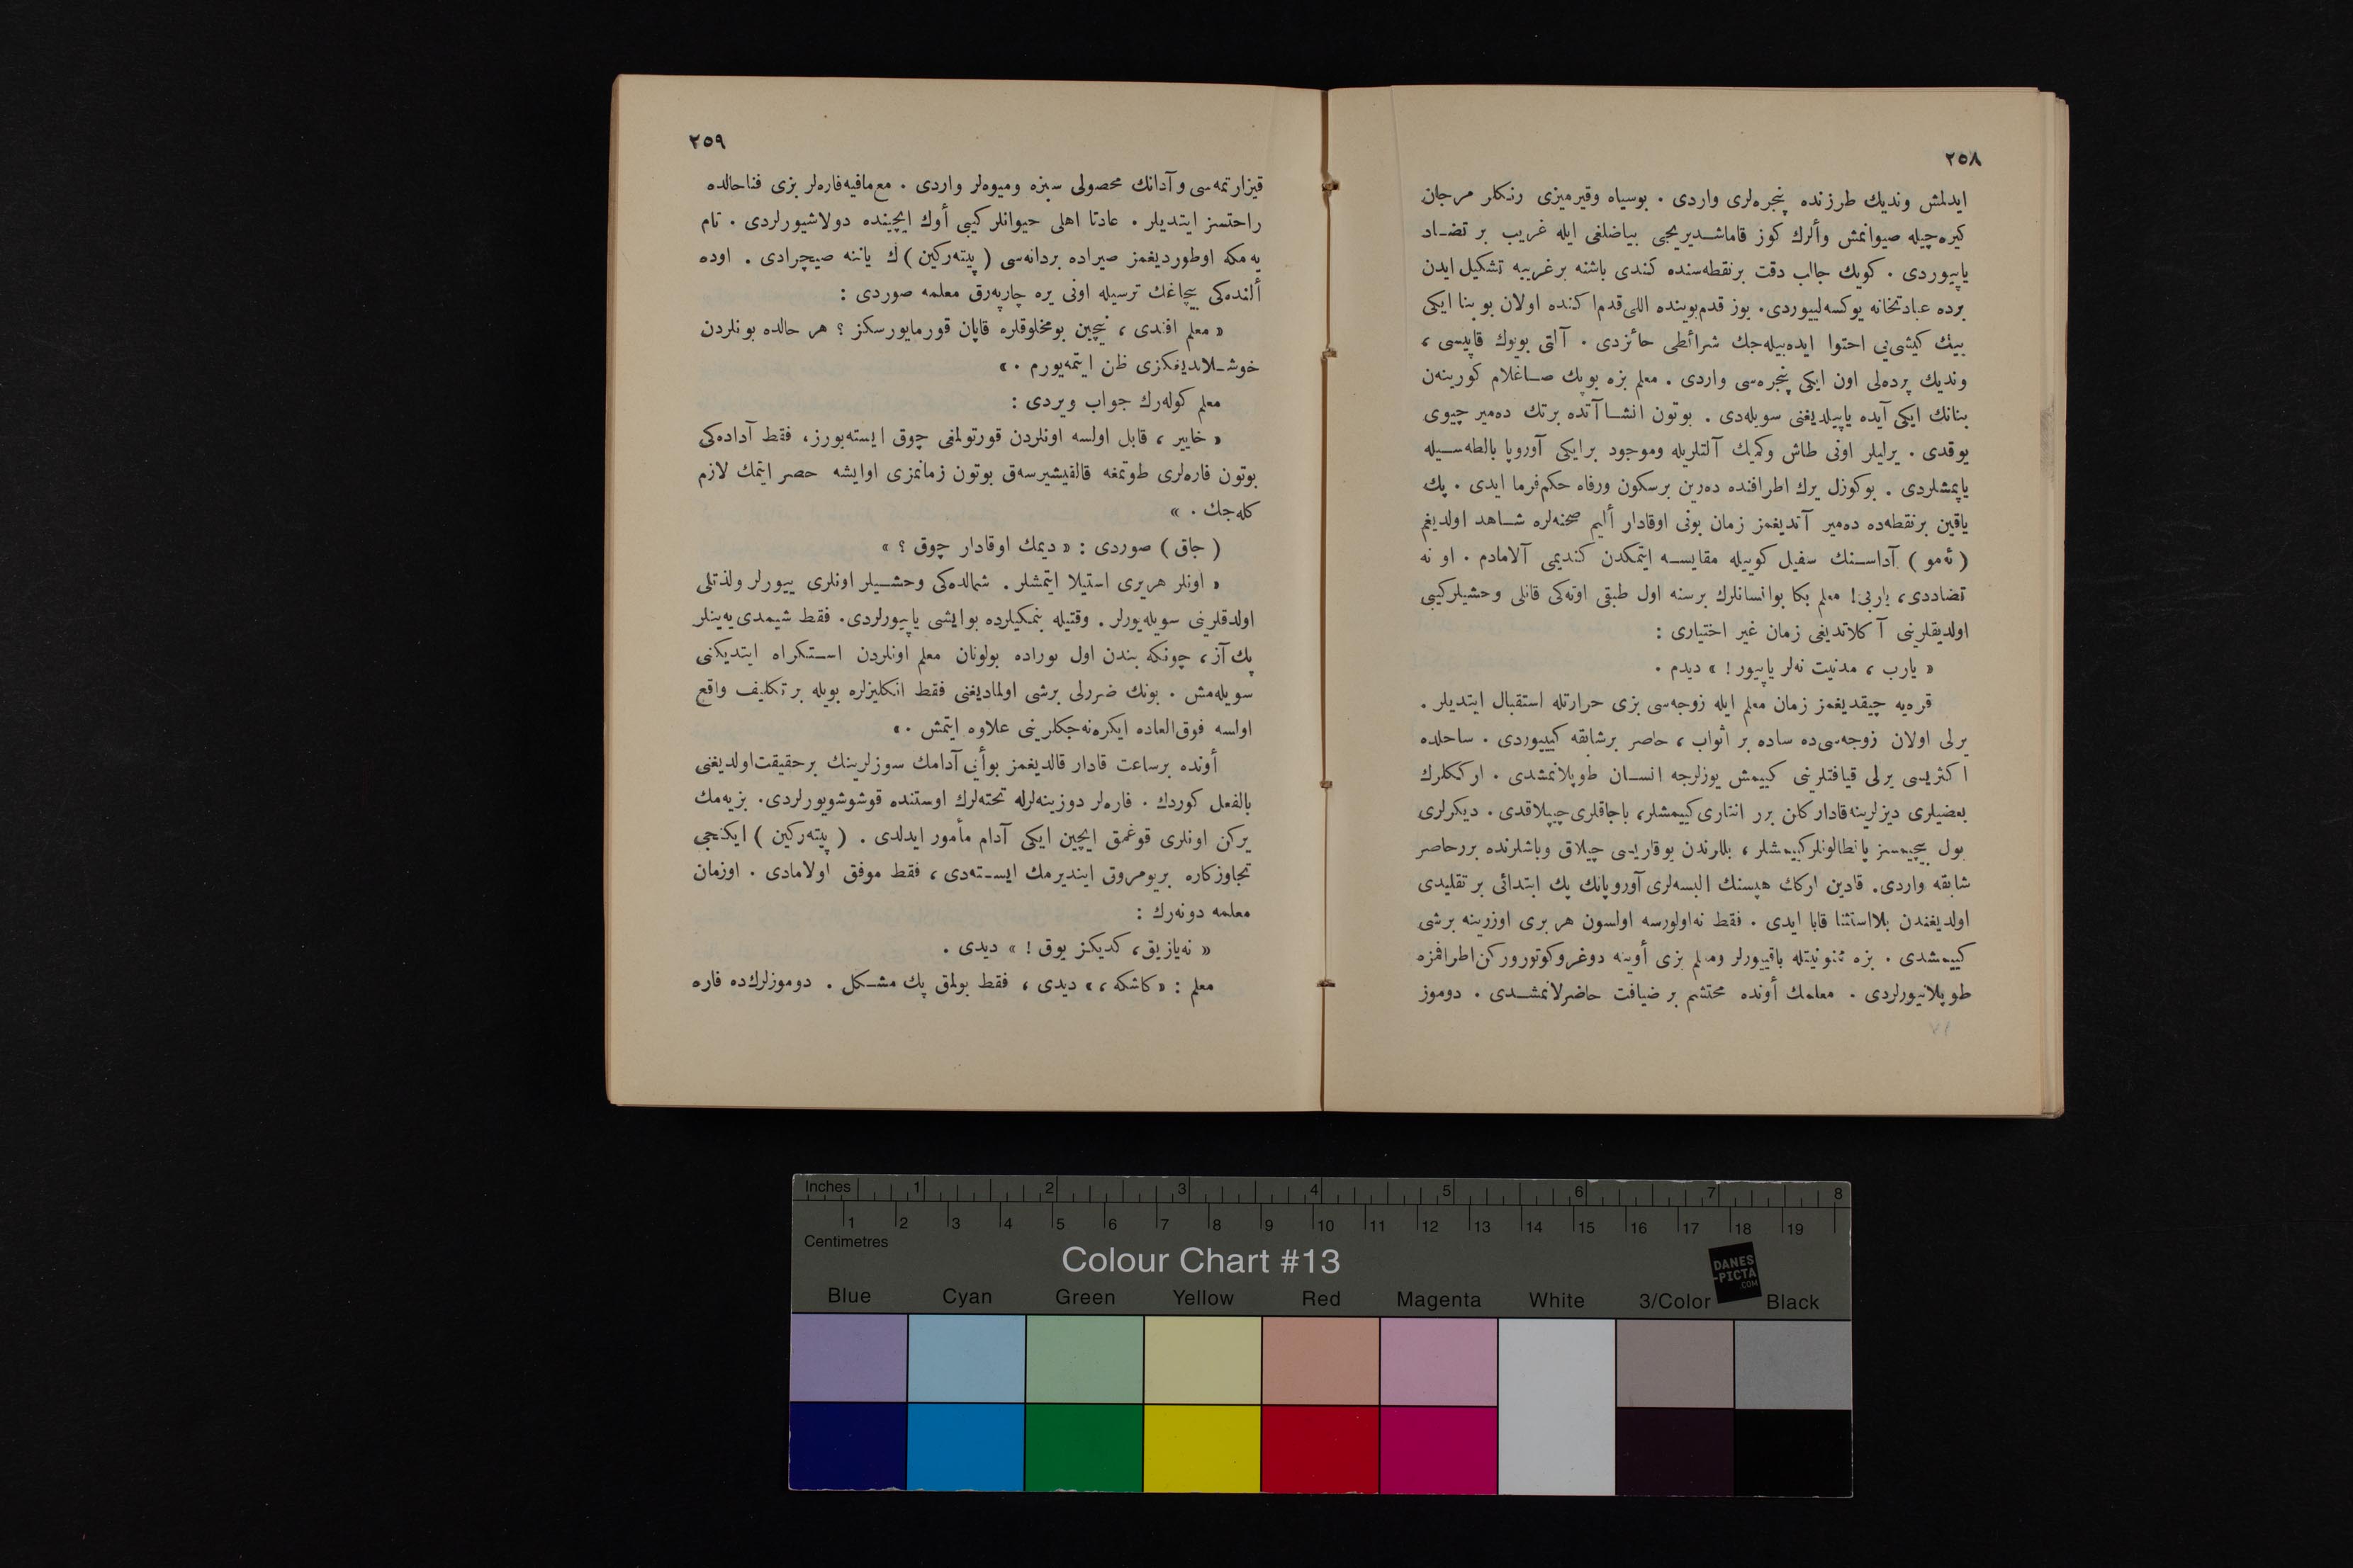 ٢٥٨
ایدلمش وندیك طرزنده پنجره‌لری واردی . بوسیاه وقیرمیزی رنكلر مرجان
كیره‌چیله صیوانمش وألرك كوز قاماشـدیریجی بیاضلغی ایله غریب بر تضـاد
یاپیوردی . كویك جالب دقت برنقطه‌سنده كندی باشنه برغریبه تشكیل ایدن
برده عبادتخانه یوكسه‌لییوردی. یوز قدم‌بوینده اللی‌قدم‌ا كنده اولان بو بنا ایكی
بیڭ كیشی‌یی احتوا ایده‌بیله‌جك شرائطی حائزدی . آلتی بویوك قاپیسی ،
وندیك پرده‌لی اون ایكی پنجره‌سی واردی . معلم بزه بوپك صـاغلام كورینه‌ن
بنانك ایكی آیده یاپیلدیغنی سویله‌دی . بوتون انشـاآتده برتك ده‌میر چیوی
یوقدی . یرلیلر اونی طاش وكمیك آلتلریله وموجود برایكی آوروپا بالطه‌سـیله
یاپمشلردی . بوكوزل یرك اطرافنده ده‌رین برسكون ورفاه حكم‌فرما ایدی . پك
یاقین برنقطه‌ده ده‌میر آتدیغمز زمان بونی اوقادار ألیم صحنه‌لره شـاهد اولدیغم
( ئه‌مو ) آداسـنك سفیل كوییله مقایسـه ایتمكدن كندیمی آلامادم . او نه
تضاددی، یاربی! معلم بكا بوانسانلرك برسنه اول طبقی اوته‌كی قانلی وحشیلركیبی
اولدیقلرینی آ كلاتدیغی زمان غیر اختیاری :
« یارب ، مدنیت نه‌لر یاپیور ! » دیدم .
قره‌یه چیقدیغمز زمان معلم ایله زوجه‌سی بزی حرارتله استقبال ایتدیلر .
یرلی اولان زوجه‌سی‌ده ساده بر اثواب ، حاصر برشابقه كییییوردی . ساحلده
اكثریسی یرلی قیافتلرینی كییمش یوزلرجه انسـان طوپلانمشدی . ارككلرك
بعضیلری دیزلرینه‌قادار كان برر انتاری‌كییمشلر، باجاقلری‌چیپلاقدی . دیكرلری
بول بیچیمسز پانطالونلركییمشلر ، بللرندن یوقاریسی چپلاق وباشلرنده بررحاصر
شابقه واردی. قادین اركك هپسنك البسه‌لری‌آوروپانك پك ابتدائی بر تقلیدی
اولدیغندن بلااستثنا قابا ایدی . فقط نه‌اولورسه اولسون هر بری اوزرینه برشی
كییمشدی . بزه ممنونیتله باقییورلر ومعلم بزی أوینه دوغروكوتورور كن‌اطرافمزه
طوپلانیورلردی . معلمك أونده محتشم بر ضیافت حاضرلانمشـدی . دوموز
١٧
٢٥٩
قیزارتمه‌سی وآدانك محصولی سبزه ومیوه‌لر واردی . مع‌مافیه‌فاره‌لر بزی فناحالده
راحتسز ایتدیلر . عادتا اهلی حیوانلركیبی أوك ایچینده دولاشیورلردی . تام
یه‌مكه اوطوردیغمز صیراده بردانه‌سی ( پیته‌ركین )ك یاننه صیچرادی . اوده
ألنده‌كی بیچاغك ترسیله اونی یره چارپه‌رق معلمه صوردی :
« معلم افندی ، نیچین بومخلوقلره قاپان قورمایورسكز ؟ هر حالده بونلردن
خوشـلاندیغكزی ظن ایتمه‌یورم . »
معلم كوله‌رك جواب ویردی :
« خایر ، قابل اولسه اونلردن قورتولمغی چوق ایسته‌یورز، فقط آداده‌كی
بوتون فاره‌لری طوتمغه قالقیشیرسه‌ق بوتون زمانمزی اوایشه حصر ایتمك لازم
كله‌جك . »
( جاق ) صوردی : « دیمك اوقادار چوق ؟ »
« اونلر هریری استیلا ایتمشلر . شمالده‌كی وحشـیلر اونلری ییورلر ولذتلی
اولدقلرینی سویله‌یورلر . وقتیله بنمكیلرده بوایشی یاپیورلردی. فقط شیمدی‌یه‌ینلر
پك آز، چونكه بندن اول بوراده بولونان معلم اونلردن اسـتكراه ایتدیكنی
سویله‌مش . بونك ضررلی برشی اولمادیغنی فقط انكلیزلره بویله بر تكلیف واقع
اولسه فوق‌العاده ایكره‌نه‌جكلرینی علاوه ایتمش . »
أونده برساعت قادار قالدیغمز بوأیی آدامك سوزلرینك برحقیقت‌اولدیغنی
بالفعل كوردك . فاره‌لر دوزینه‌لرله تخته‌لرك اوستنده قوشوشویورلردی. بزیه‌مك
یركن اونلری قوغمق ایچین ایكی آدام مأمور ایدلدی . ( پیته‌ركین ) ایكنجی
تجاوزكاره بریومروق ایندیرمك ایسـته‌دی ، فقط موفق اولامادی . اوزمان
معلمه دونه‌رك :
« نه‌یازیق، كدیكز یوق ! » دیدی .
معلم : « كاشكه ، » دیدی ، فقط بولمق پك مشـكل . دوموزلرك‌ده فاره
Inches 1 2 3 4 5 6 7 8
1 2 3 4 5 6 7 8 9 10 11 12 13 14 15 16 17 18 19
Centimetres
Colour Chart #13
DANES
-PICTA
.COM
Blue Cyan Green Yellow Red Magenta White 3/Color Black